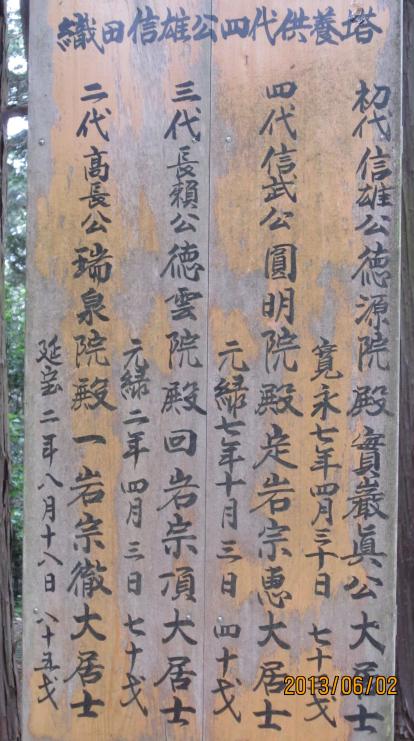 織田信雄公四代供養塔
初代信雄公徳源院殿實巖眞公大居士
寛永七年四月三十日 七十三才
四代信武公圓明院殿定岩宗恵大居士
元緑七年十月三日 四十才
三代長頼公徳雲院殿回岩宗頂大居士
元緑二年四月三日 七十才
二代高長公瑞泉院殿一岩宗徹大居士
延宝二年八月十八日 八十五才
2013/06/02